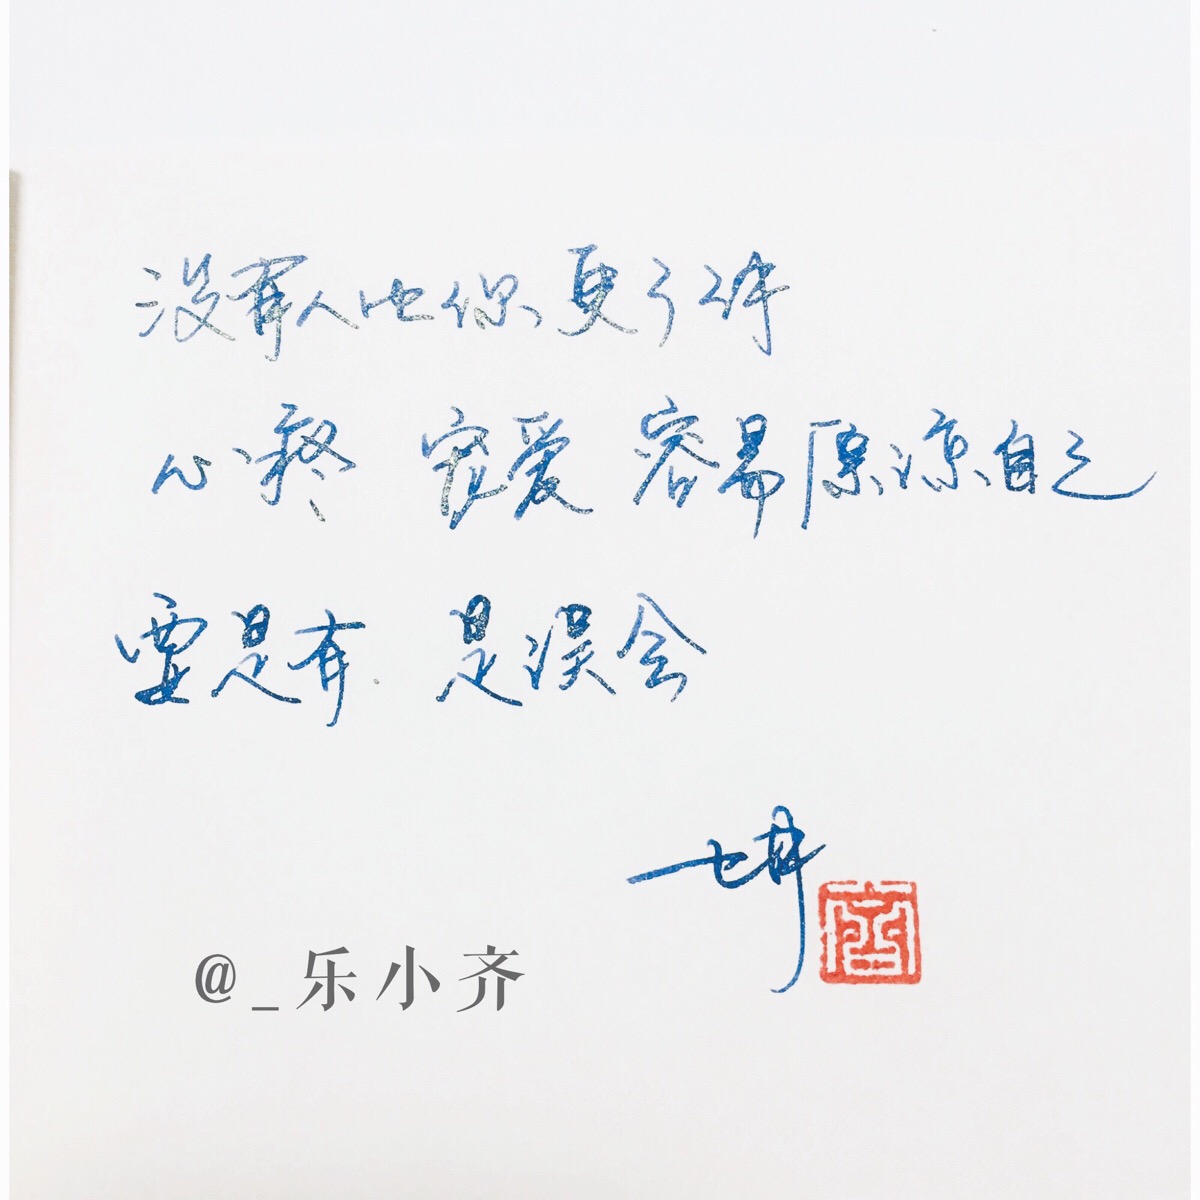 没有人比你更了解
心疼 宠爱 容易原谅自己
要是有 是误会
@_乐小齐